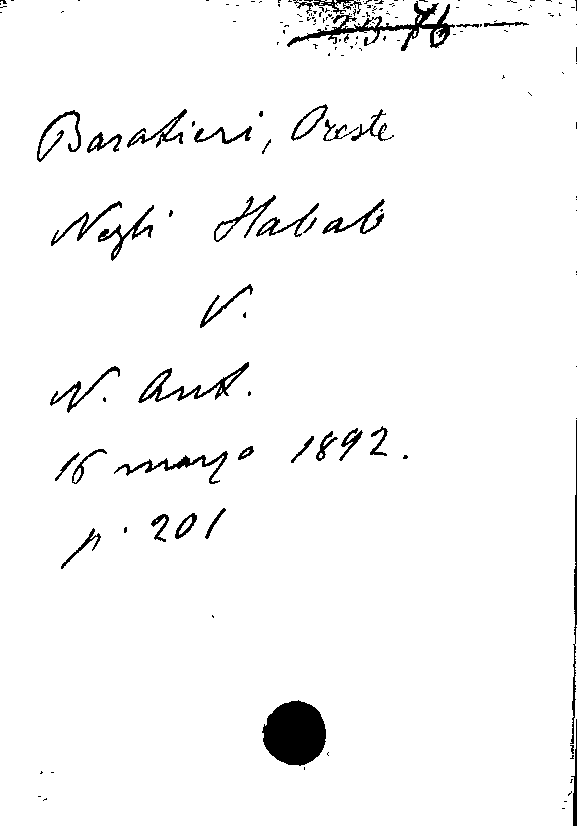 Baratieri, Oreste
Negli Habab
V.
N. Ant.
16 marzo 1892.
p. 201